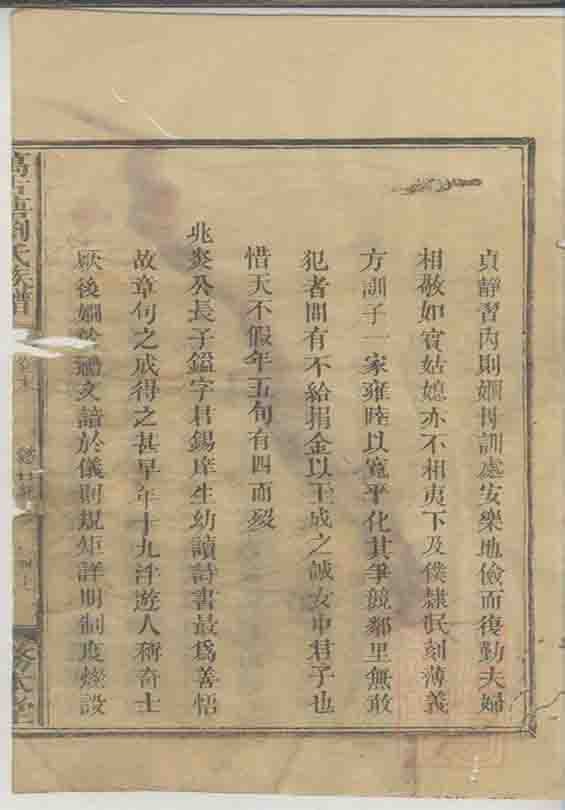 貞靜習內則嫻母訓處安樂地儉而復勤夫婦
相敬如賓姑媳亦不相夷下及僕隸泯刻薄義
方訓子一家雍睦以寬平化其爭競鄰里無敢
犯者間有不給捐金以玉成之誠女中君子也
惜天不假年五旬有四而歿
兆炎公長子鎰字君錫庠生幼讀詩書最爲善悟
故章句之成得之甚早年十九泮遊人稱奇士
厥後嫻於禮文諳於儀則規矩詳明制度燦設
劉氏族譜
卷末
敦本堂